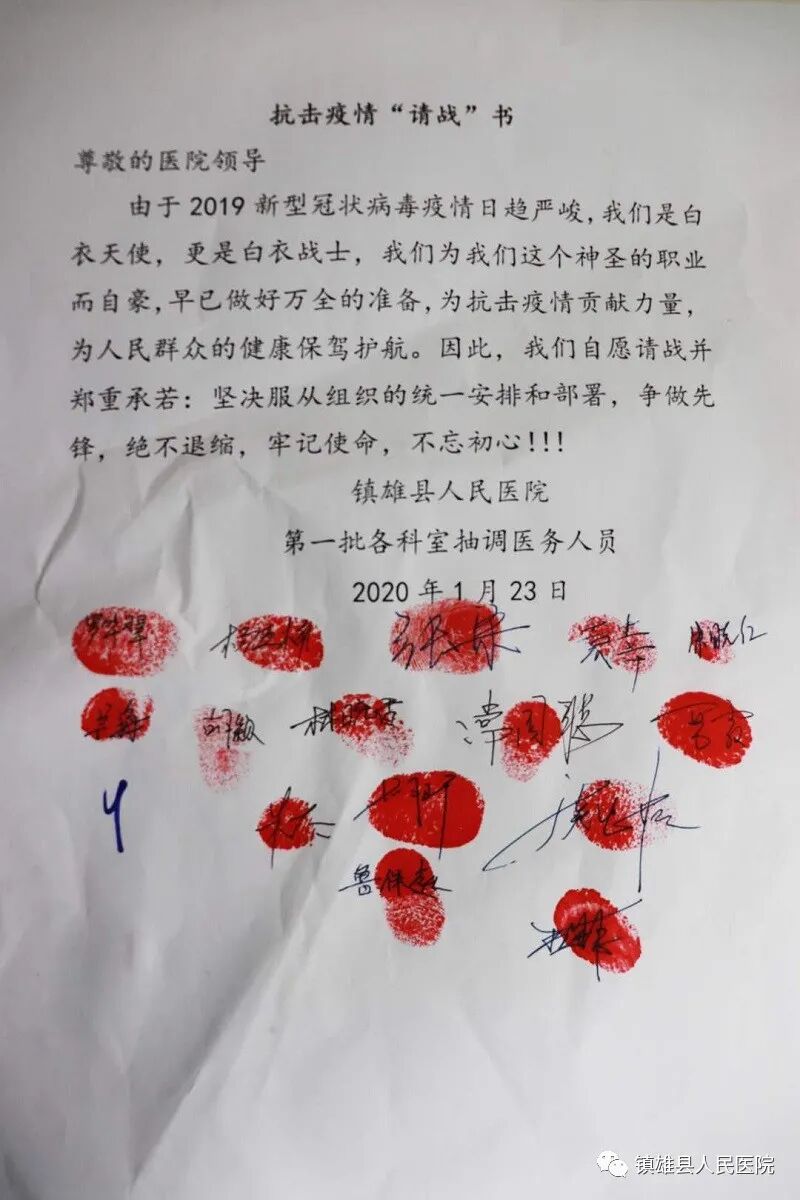 抗击疫情“请战”书
尊敬的医院领导
由于2019新型冠状病毒疫情日趋严峻,我们是白
衣天使，更是白衣战士，我们为我们这个神圣的职业
而自豪,早已做好万全的准备,为抗击疫情贡献力量，
为人民群众的健康保驾护航。因此，我们自愿请战并
郑重承若：坚决服从组织的统一安排和部署，争做先
锋，绝不退缩，牢记使命，不忘初心!!!
镇雄县人民医院
第一批各科室抽调医务人员
2020年1月23日
镇雄县人民医院